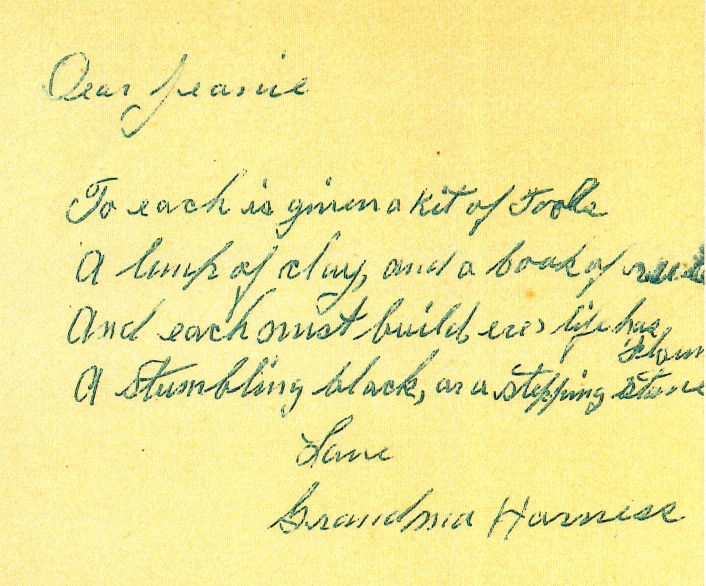 Dear Jeanie
To each is given a kit of Tools
A lump of clay, and a book of rules
And each must build, ere life has
flown
A stumbling block, or a stepping stone
Love
Grandma Harness